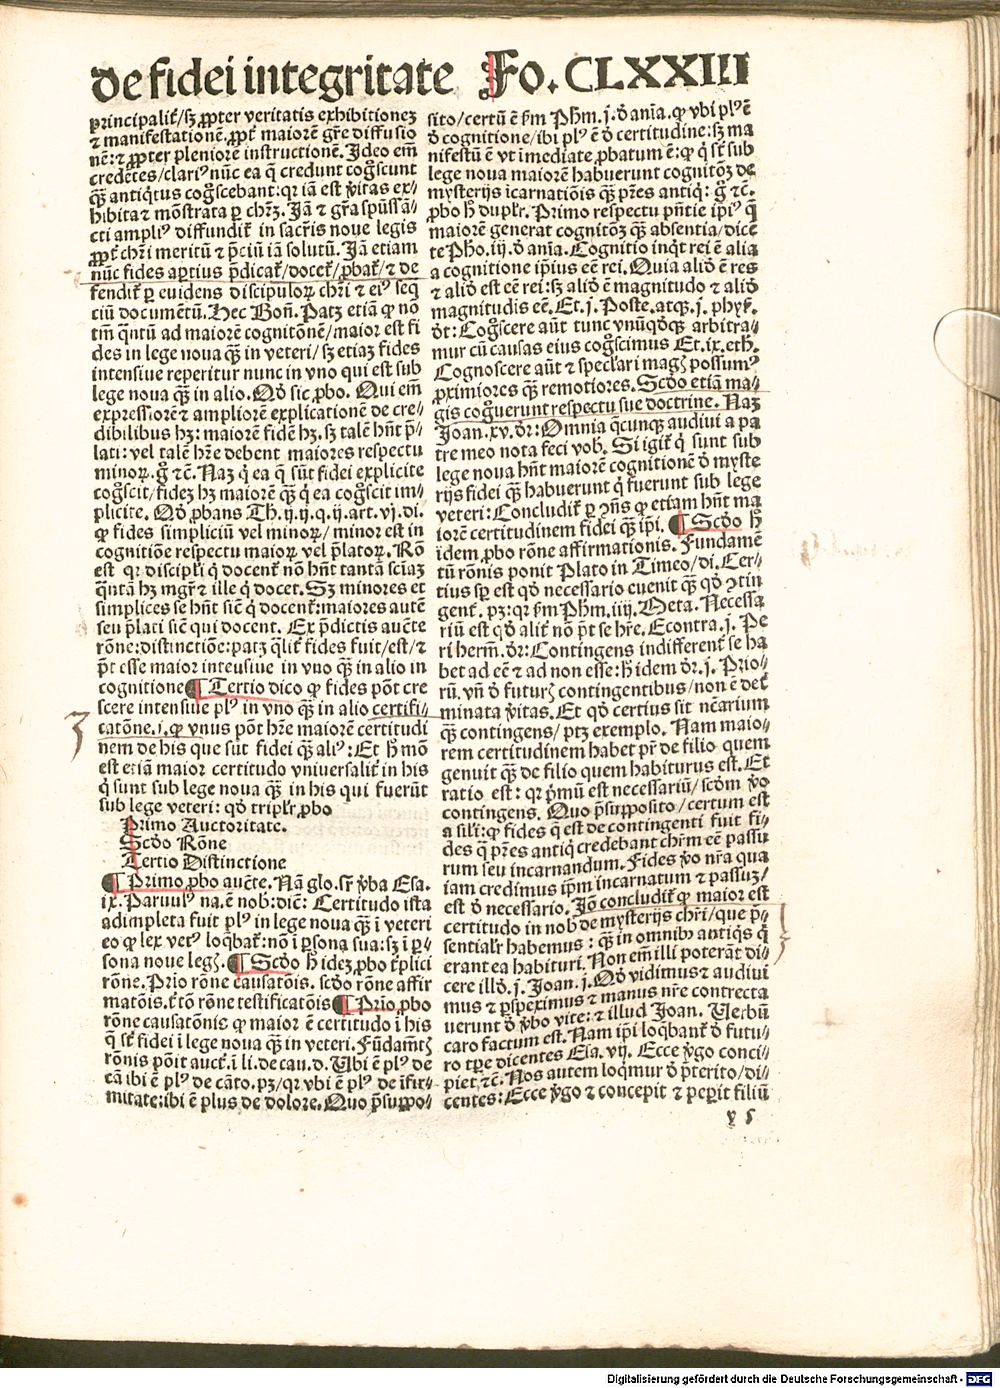 de fidei integritate Fo. CLXXIII
principalit᷑/sꝫ ꝓpter veritatis exhibitionez
⁊ manifestationē. ꝓpt᷑ maiorē gr̄e diffusio
nē: ⁊ ꝓpter pleniorē instructionē. Ideo em̄
credētes/clariꝰ nūc ea q̄ credunt cog̃scunt
qᷓꝫ antiq̇tus cog̃scebant: qꝛ iā est v̓itas ex⸗
hibita ⁊ mōstrata ꝑ chr̄ꝫ. Iā ⁊ gr̄a spūssā⸗
cti ampliꝰ diffundit᷑ in sacr̄is noue legis
ꝓpt᷑ chr̄i meritū ⁊ p̄ciū iā solutū. Iā etiam
nūc fides aꝑtius p̄dicat᷑/docet᷑/ꝓbat᷑/⁊ de
fendit᷑ ꝑ euidens discipuloꝝ chr̄i ⁊ eiꝰ seq̄
ciū documētū. Hec Boñ. Patꝫ etiā ꝙ no
tm̄ q̄ntū ad maiorē cognitōnē/maior est fi
des in lege noua qᷓꝫ in veteri/sꝫ etiaꝫ fides
intensiue reperitur nunc in vno qui est sub
lege noua qᷓꝫ in alio. Qd̓ sic ꝓbo. Qui em̄
expressiorē ⁊ ampliorē explicationē de cre⸗
dibilibus hꝫ: maiorē fidē hꝫ. sꝫ talē hn̄t p̄⸗
lati: vel talē hr̄e debent maiores respectu
minoꝝ. g̊ ⁊c. Naꝫ q̇ ea q̄ sūt fidei explicite
cog̃scit/fideꝫ hꝫ maiorē qᷓꝫ q̇ ea cog̃scit im⸗
plicite. Qd̓ ꝓbans Th. ij. ij. q. ij. art. vj. di.
ꝙ fides simpliciū vel minoꝝ/minor est in
cognitiōe respectu maioꝝ vel p̄latoꝝ. Rō
est qꝛ discipl̓i q̇ docent᷑ nō hn̄t tantā sciaꝫ
q̄ntā hꝫ mgr̄ ⁊ ille q̇ docet. Sꝫ minores et
simplices se hn̄t sic̄ q̇ docent᷑: maiores autē
seu p̄lati sic̄ qui docent. Ex p̄dictis auc̄te
rōne: distinctiōe: patꝫ q̄lit᷑ fides fuit/est/⁊
p̄t esse maior intensiue in vno qᷓꝫ in alio in
cognitione ¶ Tertio dico ꝙ fides pōt cre
scere intensiue plꝰ in vno qᷓꝫ in alio certifi⸗
catōne. i. ꝙ vnus pōt hr̄e maiorē certitudi
nem de his que sūt fidei qᷓꝫ aliꝰ: Et h̓ mō
est etiā maior certitudo vniuersalit᷑ in his
q̇ sunt sub lege noua qᷓꝫ in his qui fuerūt
sub lege veteri: qd̓ tripl̓r ꝓbo
Primo Auctoritate.
Scd̓o Rōne
Tertio Distinctione
¶ Primo ꝓbo auc̄te. Nā glo. sr̄ v̓ba Esa.
ix. Paruulꝰ na. ē nob̓: dic̄: Certitudo ista
adimpleta fuit plꝰ in lege noua qᷓꝫ ī veteri
eo ꝙ lex vetꝰ loq̄bat᷑: nō ī ꝑsona sua: sꝫ ī ꝑ⸗
sona noue legꝭ. ¶ Scd̓o h̓ ideꝫ ꝓbo t̓plici
rōne. Prīo rōne causatōis. scd̓o rōne affir
matōis. t̓tō rōne testificatōis ¶ Prīo ꝓbo
rōne causatōnis ꝙ maior ē certitudo ī his
q̄ st̄ fidei ī lege noua qᷓꝫ in veteri. Fūdam̄tꝫ
rōnis pōit auct̄. ī li. de cau. d. Ubi ē plꝰ de
cā ibi ē plꝰ de cāto. pꝫ/qꝛ vbi ē plꝰ de īfir⸗
mitate: ibi ē plus de dolore. Quo p̄suppo⸗
sito/certū ē ẜm Ph̓m. j. d̓ anīa. ꝙ vbi plꝰ ē
d̓ cognitione/ibi plꝰ ē d̓ certitudine: sꝫ ma
nifestū ē vt īmediate ꝓbatum ē: ꝙ q̇ st̄ sub
lege noua maiorem habuerunt cognitōꝫ de
mysterijs īcarnatiōis qᷓꝫ pr̄es antiq̇: g̊ ⁊c.
ꝓbo h̓ dupl̓r. Primo respectu pn̄tie ip̄iꝰ q̄
maiorē generat cognitōꝫ qᷓꝫ absentia/dicē
te Ph̓o. iij. d̓ anīa. Cognitio inq̇t rei ē alia
a cognitione ip̄ius eē rei. Quia alid̓ ē res
⁊ alid̓ est eē rei: sꝫ alid̓ ē magnitudo ⁊ alid̓
magnitudis eē. Et. j. Poste. atqꝫ. j. phyẜ.
d̓t: Cog̃scere aūt tunc vnūqd̓qꝫ arbitra⸗
mur cū causas eius cog̃scimus Et. ix. eth̓.
Cognoscere aūt ⁊ specl̓ari magꝭ possumꝰ
ꝓximiores qᷓꝫ remotiores. Scd̓o etiā ma⸗
gis cog̃uerunt respectu sue doctrine. Naꝫ
Joan. xv. d̓r: Omnia q̄cunqꝫ audiui a pa
tre meo nota feci vob̓. Si igit᷑ q̇ sunt sub
lege noua hn̄t maiorē cognitionē d̓ myste
rijs fidei qᷓꝫ habuerunt q̇ fuerunt sub lege
veteri: Concludit᷑ ꝑ ꝯn̄s ꝙ etiam hn̄t ma
iorē certitudinem fidei qᷓꝫ ip̄i. ¶ Scd̓o h̓
idem ꝓbo rōne affirmationis. Fundamē
tū rōnis ponit Plato in Timeo/di. Cer⸗
tius sp̄ est qd̓ necessario euenit qᷓꝫ qd̓ ꝯtin
gent᷑. pꝫ: qꝛ ẜm Ph̓m. iiij. Meta. Necessa
riū est qd̓ alit᷑ nō p̄t se hr̄e. Econtra. j. Pe
ri herm̄. d̓r: Contingens indifferent᷑ se ha
bet ad eē ⁊ ad non esse: h̓ idem d̓r. j. Prio⸗
rū. vn̄ d̓ futurꝭ contingentibus/non ē det᷑
minata v̓itas. Et qd̓ certius sit nc̄arium
qᷓꝫ contingens/ptꝫ exemplo. Nam maio⸗
rem certitudinem habet pr̄ de filio quem
genuit qᷓꝫ de filio quem habiturus est. Et
ratio est: qꝛ p̄mū est necessariū/scd̓m v̓o
contingens. Quo p̄supposito/certum est
a sil̓i: ꝙ fides q̄ est de contingenti fuit fi⸗
des q̄ pr̄es antiq̇ credebant chr̄m eē passu
rum seu incarnandum. Fides v̓o nr̄a qua
iam credimus ip̄m incarnatum ⁊ passuꝫ/
est d̓ necessario. Iō concludit᷑ ꝙ maior est
certitudo in nob̓ de mysterijs chr̄i/que p̄⸗
sential̓r habemus: qᷓꝫ in omnibꝫ antiq̇s q̇
erant ea habituri. Non em̄ illi poterāt di⸗
cere illd̓. j. Joan. j. Qd̓ vidimus ⁊ audiui
mus ⁊ ꝑspeximus ⁊ manus nr̄e contrecta
uerunt d̓ v̓bo vite: ⁊ illud Joan. Verbū
caro factum est. Nam ip̄i loq̄bant᷑ d̓ futu⸗
ro tꝑe dicentes Esa. vij. Ecce v̓go conci⸗
piet ⁊c. Nos autem loq̄mur d̓ p̄terito/di⸗
centes: Ecce v̓go ⁊ concepit ⁊ peꝑit filiū
y 5
Digitalisierung gefördert durch die Deutsche Forschungsgemeinschaft - DFG